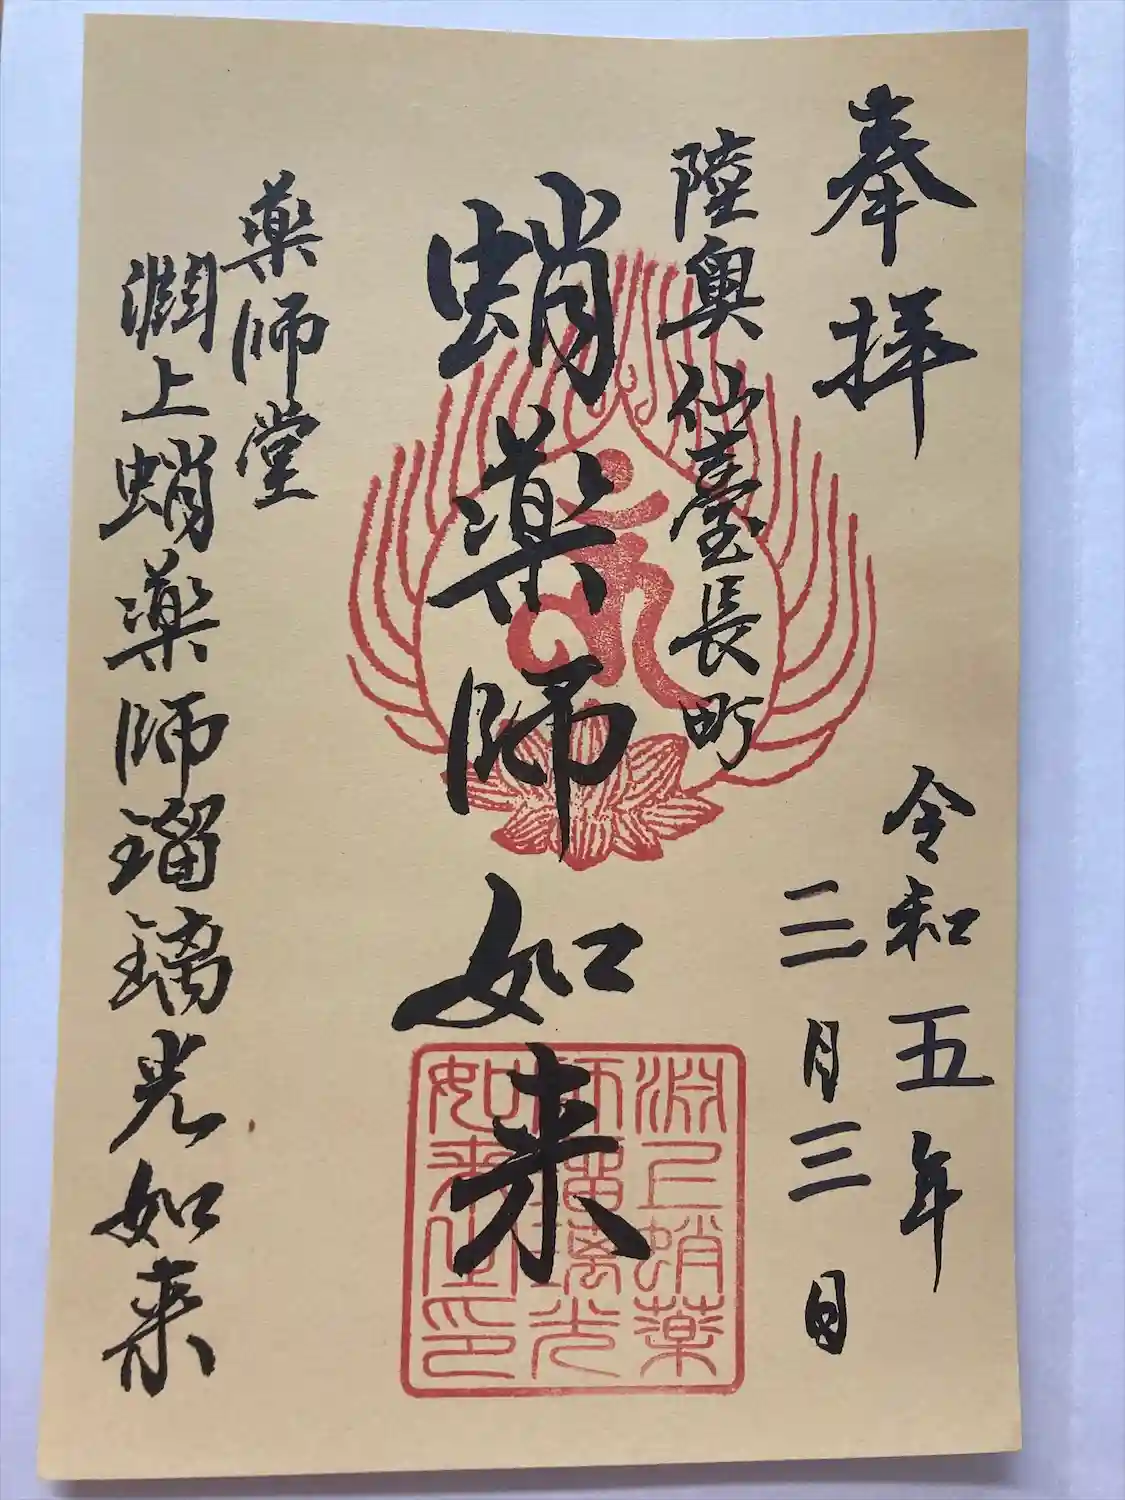 奉拝
令和五年
三月三日
陸奥仙臺長町
蛸薬師如来
薬師堂
淵上蛸薬師瑠璃光如来
淵上蛸薬
師瑠璃光
如来之印